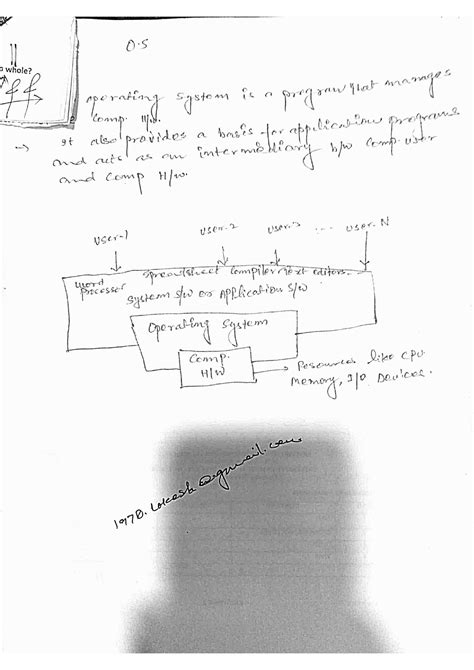 a whole?
O.S
operating system is a program that manages
comp. H/w.
→ It also provides a basis for application programs
and acts as an intermediary b/w comp. user
and comp H/w.
user-1 user-2 user-3 ... user-N
word processer spreadsheet compiler text editors.
system s/w or Application S/w
Operating System
Comp. H/W
→ Resources like CPU
Memory, I/O Devices.